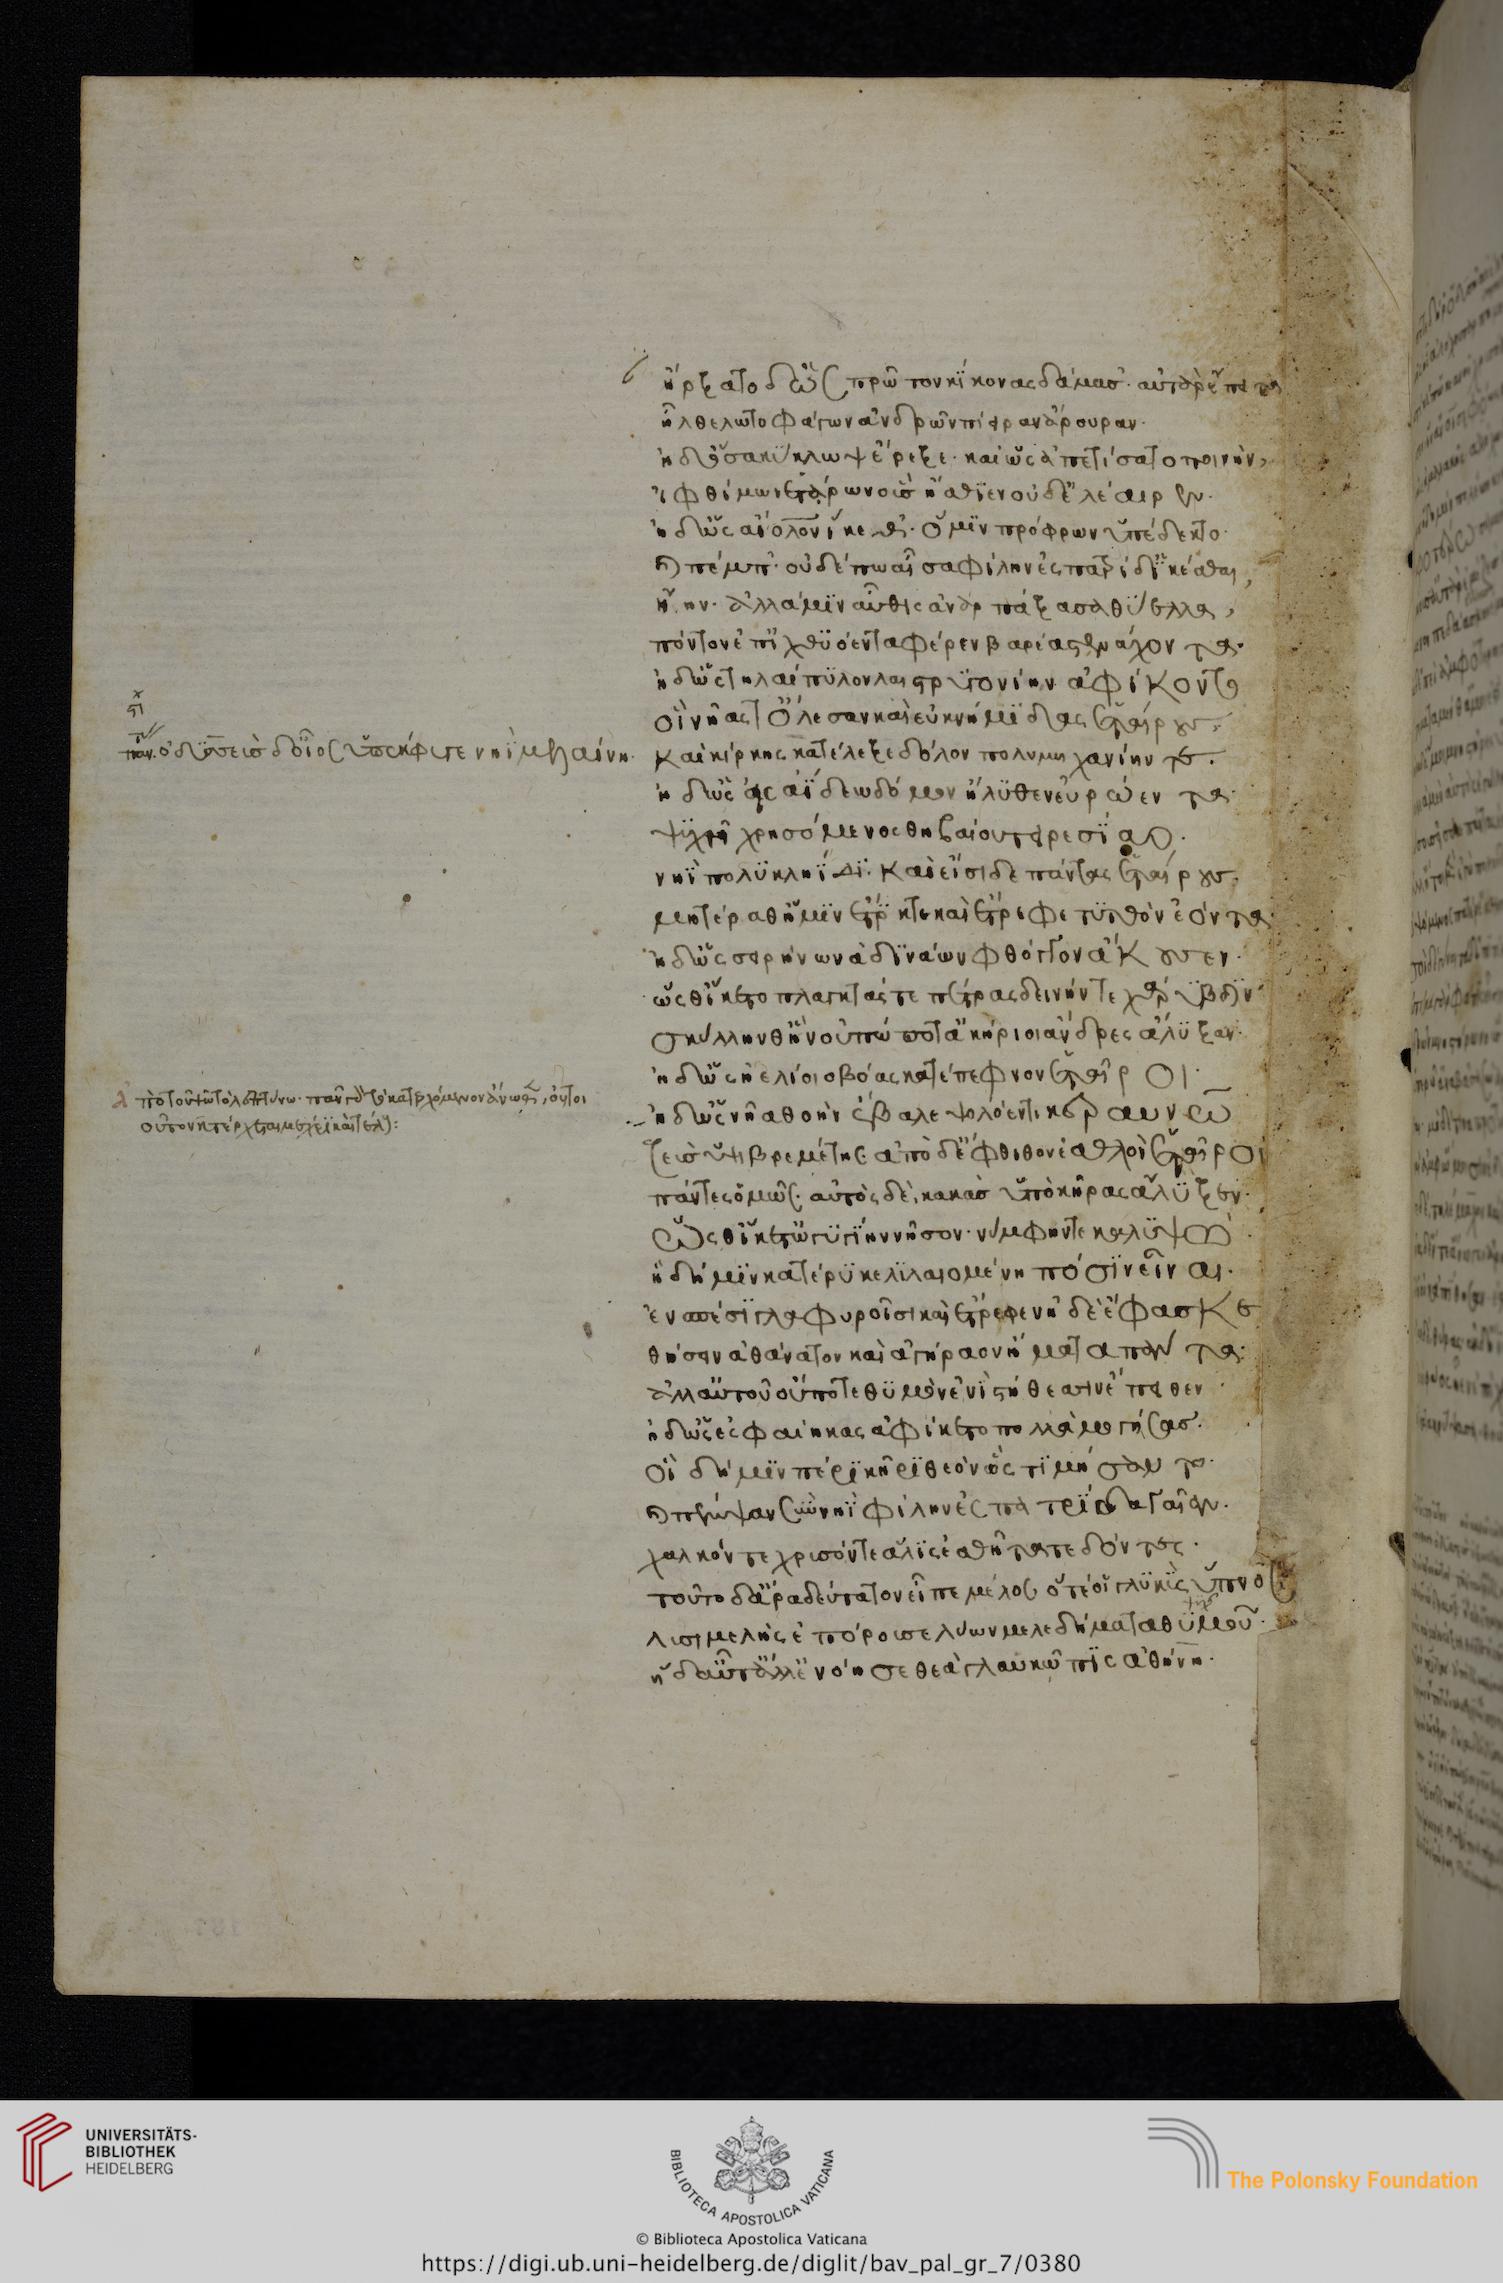 ἤρξατο δ' ὡς πρῶτον κίκονας δάμασ'· αὐτὰρ ἔπειτα
ἦλθε λωτοφάγων ἀνδρῶν πίειραν ἄρουραν·
ἠδ' ὅσα κύκλωψ ἔρεξε· καὶ ὡς ἀπετίσατο ποινήν,
ἰφθίμων ἑτάρων οὓς ἤσθιεν οὐδ' ἐλέαιρεν·
ἠδ' ὡς αἴολον ἵκεθ'· ὅ μϊν πρόφρων ὑπέδεκτο·
καὶ πέμπ'· οὐδέ πω αἶσα φίλην ἐς πατρίδ' ἱκέσθαι,
ἤην· ἀλλά μϊν αὖθις ἀναρπάξασα θύελλα,
πόντον ἐπ' ἰχθυόεντα φέρεν βαρέα στενάχοντα·
ἠδ' ὡς τηλαίπυλον λαιστρυγονίην ἀφίκοντο
οἳ νῆάς τ' ὄλεσαν καὶ εὐκνήμϊδας ἑταίρους·
ὀδυσσεὺς δ' οἶος ὑπέκφυγε νηῒ μελαίνῃ·
καὶ κίρκης κατέλεξε δόλον πολυμηχανίην τε·
ἠδ' ὡς εἰς ἀΐδεω δόμον ἤλυθεν εὐρώεντα
ψυχῇ χρησόμενος θηβαίου τειρεσίαο·
νηῒ πολυκλήϊδι· καὶ εἴσιδε πάντας ἑταίρους·
μητέρα θ' ἥ μϊν ἔτικτε καὶ ἔτρεφε τυτθὸν ἐόντα·
ἠδ' ὡς σειρήνων ἀδινάων φθόγγον ἄκουσεν·
ὥς θ' ἵκετο πλαγκτάς τε πέτρας δεινήν τε χάρυβδιν
σκύλλην θ' ἣν οὔ πώ ποτ' ἀκήριοι ἄνδρες ἄλυξαν·
ἠδ' ὡς ἠελίοιο βόας κατέπεφνον ἑταῖροι·
ἠδ' ὡς νῆα θοὴν ἔβαλε ψολόεντι κεραυνῷ
ζεὺς ὑψιβρεμέτης ἀπὸ δ' ἔφθιθον ἐσθλοὶ ἑταῖροι
πάντες ὁμῶς· αὐτὸς δὲ κακὰς ὑπὸ κῆρας ἄλυξεν·
ὥς θ' ἵκετ' ὠγυγίην νῆσον· νύμφην τε καλυψώ·
ἣ δή μϊν κατέρυκε λιλαιομένη πόσϊν εἶναι·
ἐν σπέσϊ γλαφυροῖσι καὶ ἔτρεφεν ἠδὲ ἔφασκε
θήσειν ἀθάνατον καὶ ἀγήραον ἤματα πάντα·
ἀλλ' αὐτοῦ οὔποτε θυμὸν ἐνὶ στήθεσσιν ἔπειθεν
ἠδ' ὡς ἐς φαίηκας ἀφίκετο πολλὰ μογήσας·
οἳ δή μϊν πέρϊ κῆρϊ θεὸν ὣς τϊμήσαντο·
καὶ πέμψαν σὺν νηῒ φίλην ἐς πατρίδα γαῖαν·
χαλκόν τε χρυσόν τε ἅλϊς ἐσθῆτά τε δόντες·
τοῦτο δ' ἄρα δεύτατον εἶπε μέλος ὅτέ οἱ γλυκὺς ὕπνος
λυσιμελὴς ἐπόρουσε λύων μελεδήματα θυμοῦ·
ἡ δ' αὖτ' ἄλλ' ἐνόησε θεὰ γλαυκῶπις ἀθήνη·
UNIVERSITÄTS-
BIBLIOTHEK
HEIDELBERG
BIBLIOTECA APOSTOLICA VATICANA
The Polonsky Foundation
© Biblioteca Apostolica Vaticana
https://digi.ub.uni-heidelberg.de/diglit/bav_pal_gr_7/0380